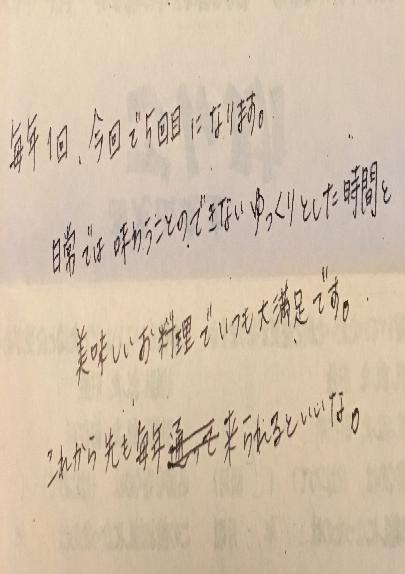 毎年1回、今回で5回目になります。
日常では味わうことのできないゆっくりとした時間と
美味しいお料理でいつも大満足です。
これから先も毎年来られるといいな。